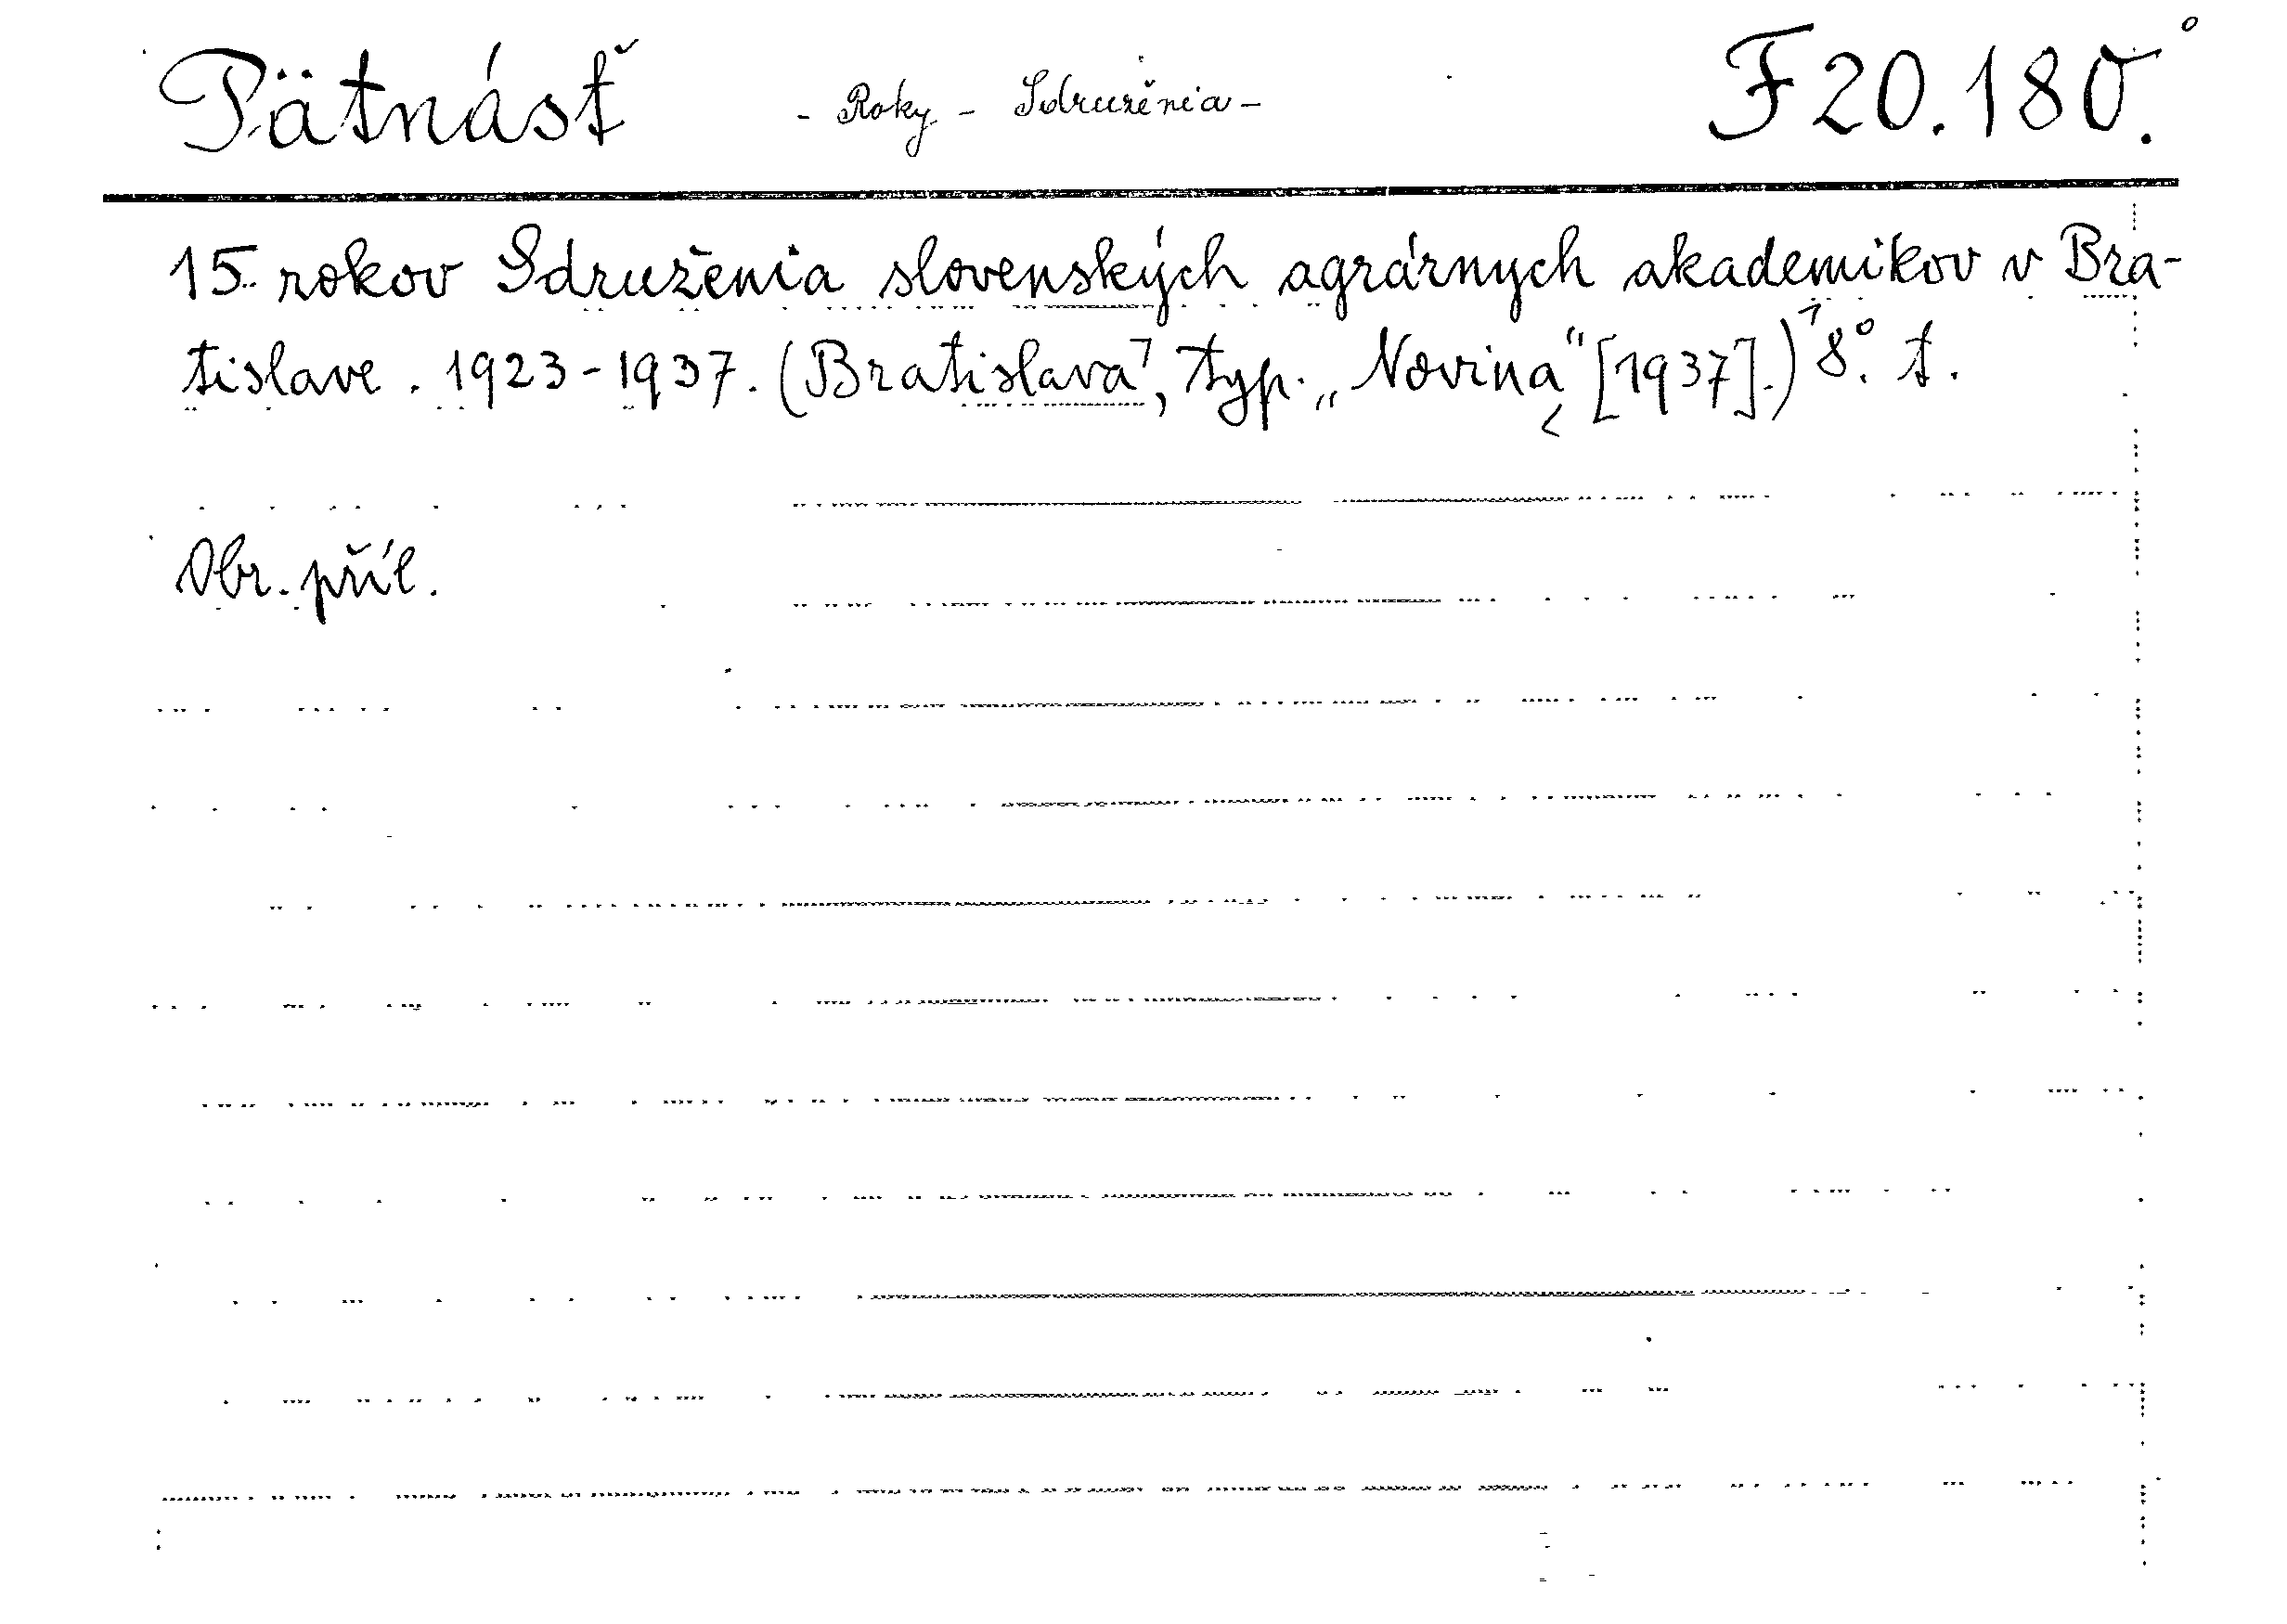 Pätnásť - Roky - Sdruženia - F 20.180.
15. rokov Sdruženia slovenských agrárnych akademikov v Bra-
tislave. 1923-1937. (Bratislava, typ. „Novina“ [1937].) 8°. t.
Obr. příl.